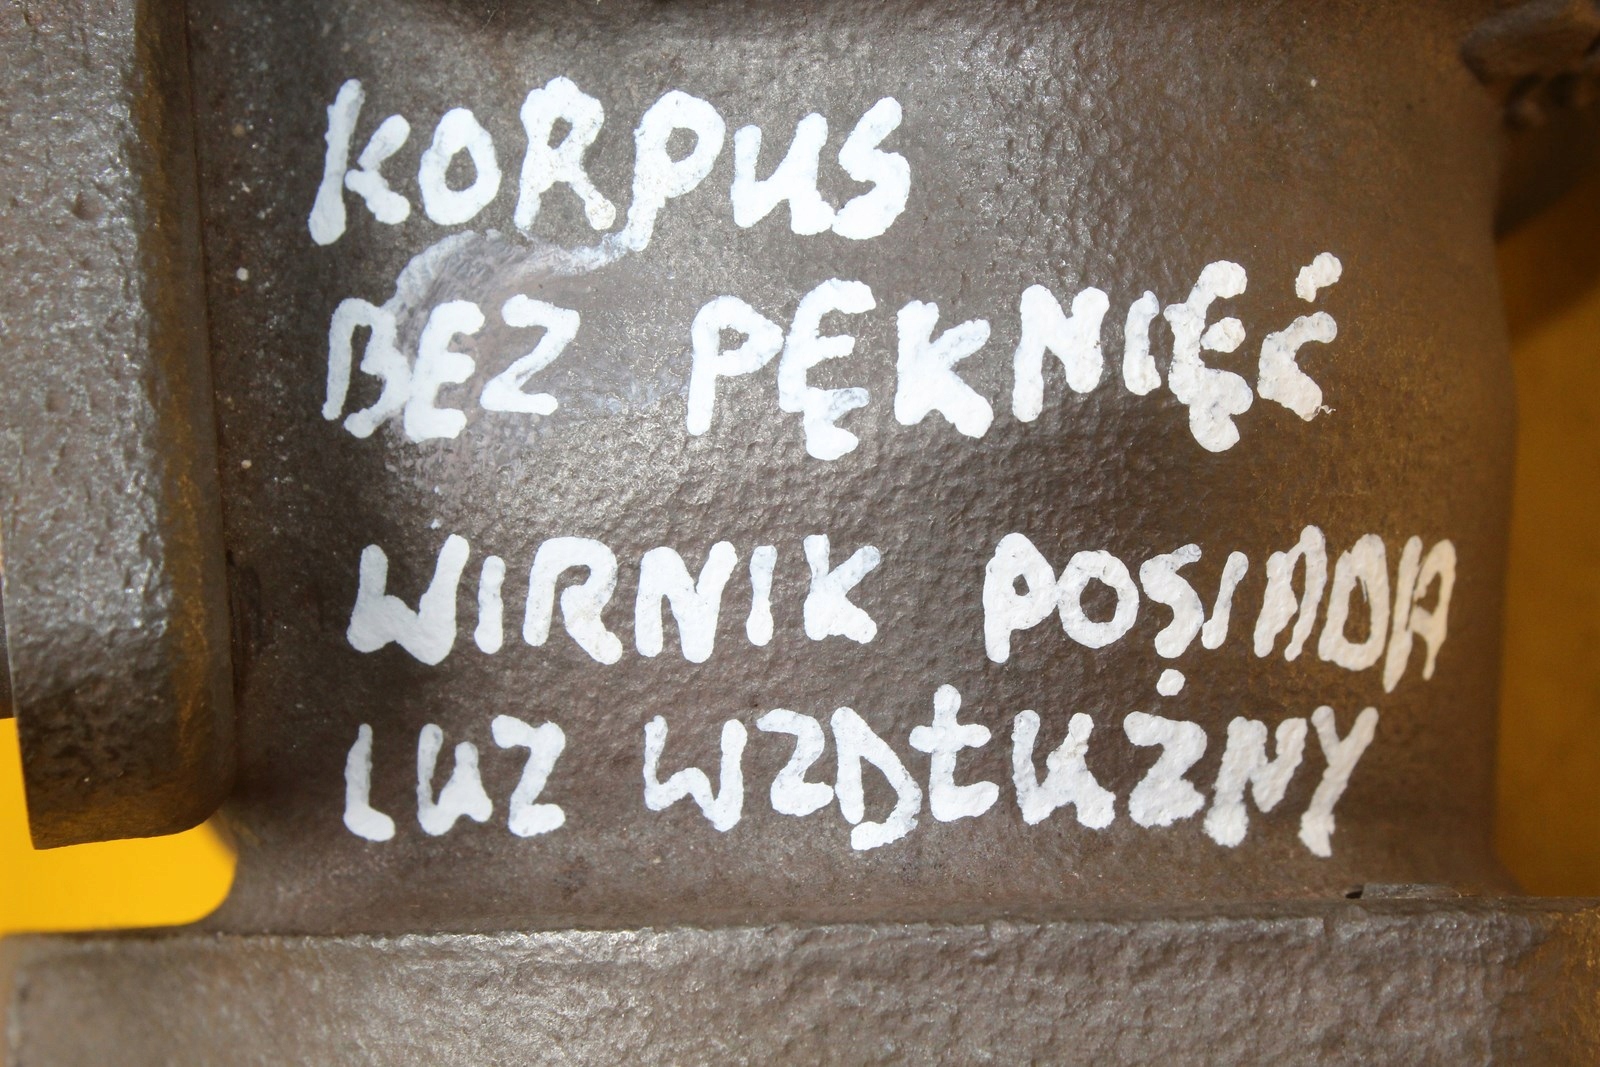 KORPUS
BEZ PĘKNIĘĆ
WIRNIK POSIADA
LUZ WZDŁUŻNY